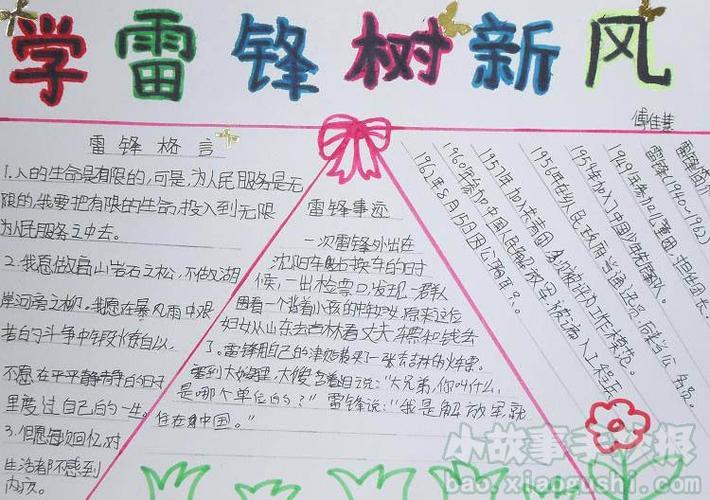 学雷锋树新风
傅佳慧
雷锋格言
1.人的生命是有限的,可是,为人民服务是无
限的,我要把有限的生命,投入到无限
为人民服务之中去。
2.我愿做高山岩石之松,不做湖
岸河旁之柳。我愿在暴风雨中艰
苦的斗争中锻炼自从
不愿在平平静静的日子
里度过自己的一生。
3.但愿每次回忆,对
生活都不感到
内疚。
雷锋事迹
一次雷锋外出在
沈阳车站换车的时
候,一出检票口,发现一群人
围看一个背着小孩的中年妇女,原来这位
妇女从山东去吉林看丈夫,车票和钱丢
了。雷锋用自己的津贴费买了一张去吉林的火车票。
塞到大嫂手里,大嫂含着泪说:“大兄弟,你叫什么,
是哪个单位的?”雷锋说:“我是解放军,就
住在中国。”
雷锋简介
雷锋(1940-1962)
1949年参加儿童团,担任团长。
1954年加入中国少年先锋队。
1956年在乡人民政府当通迅员,后来当公务员。
1957年加入共青团,多次被评为工作模范。
1960年参加中国人民解放军,
1962年8月15日因公殉职。
小故事手抄报
bao.xiaogushi.com